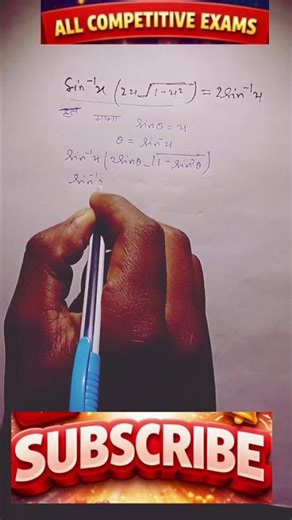 ALL COMPETITIVE EXAMS
sin⁻¹x (2x√1-x²) = 2sin⁻¹x
हल माना sinθ = x
θ = sin⁻¹x
sin⁻¹x (2sinθ √1-sin²θ)
sin⁻¹
SUBSCRIBE